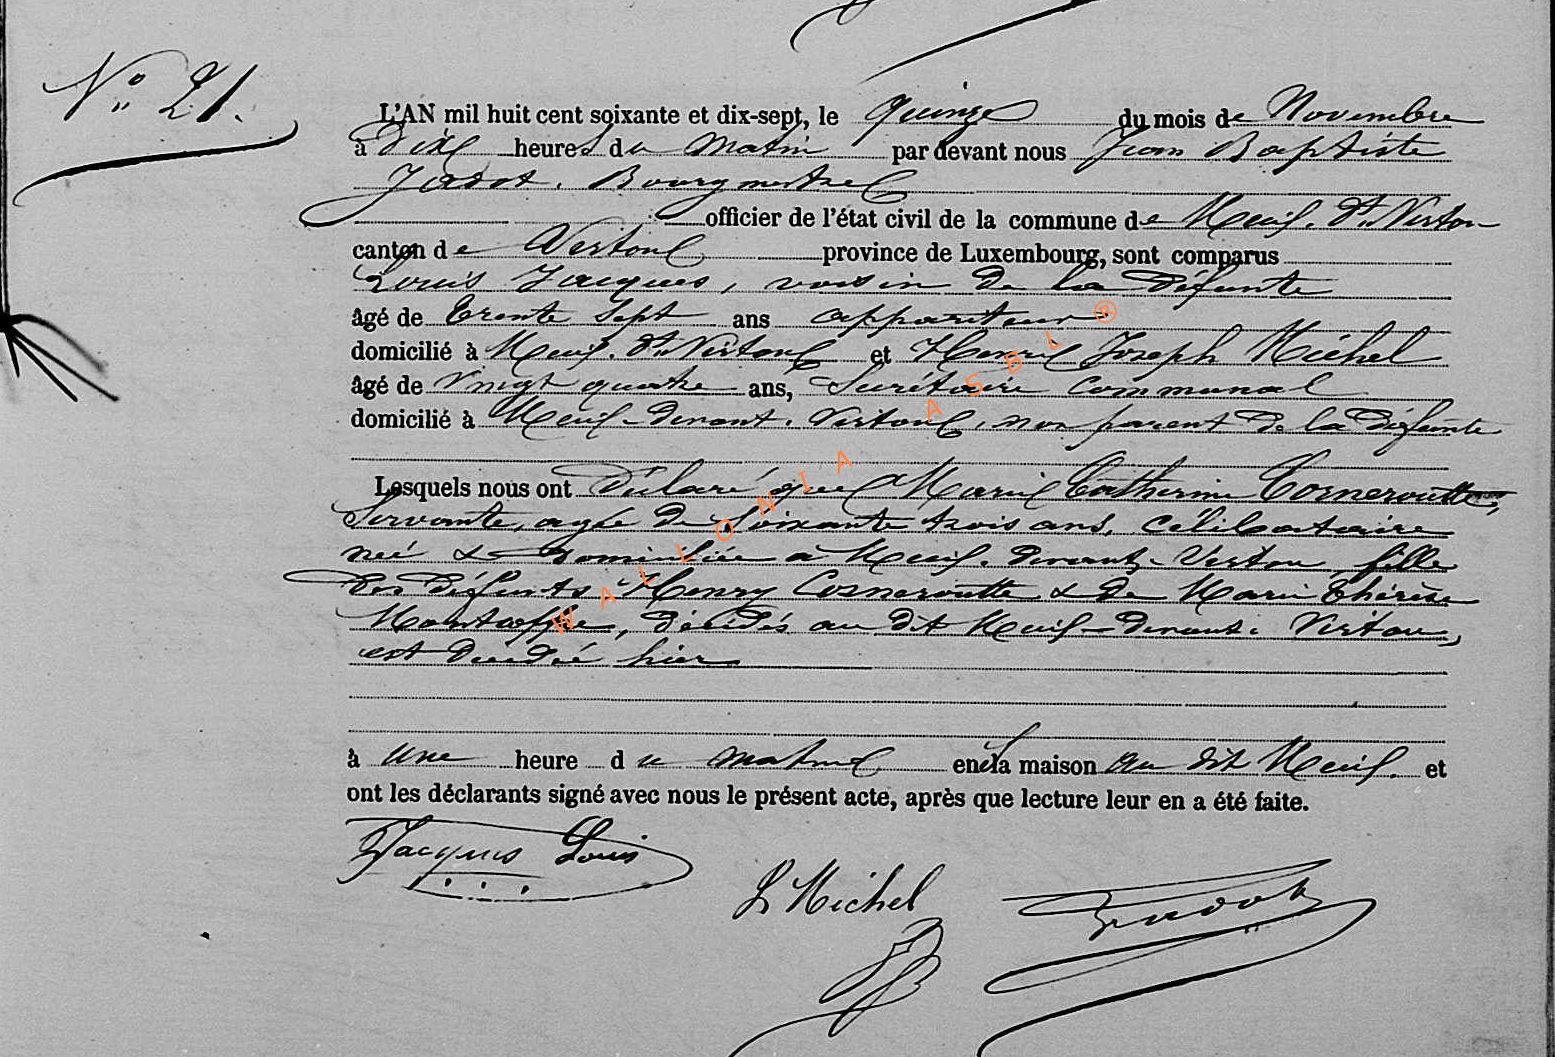 N° 21.
L'AN mil huit cent soixante et dix-sept, le quinze du mois de Novembre
à Dix heures du matin par devant nous Jean Baptiste
Jadot. Bourgmestre
officier de l'état civil de la commune de Meix. dt. Virton
canton de Virton province de Luxembourg, sont comparus
Louis Jacques, voisin de la défunte
âgé de trente sept ans appariteur
domicilié à Meix. dt. Virton et Henri Joseph Michel
âgé de vingt quatre ans, Secrétaire communal
domicilié à Meix-devant. Virton, non parent de la défunte
Lesquels nous ont déclaré que Marie Catherine Corneroutte,
Servante, agée de Soixante trois ans, célibataire
née & domiciliée à Meix. devant. Virton, fille
des défunts Henry Corneroutte & de Marie Thérèse
décédés au dit Meix-devant. Virton,
est décédée hier
à une heure du matin en la maison au dit Meix. et
ont les déclarants signé avec nous le présent acte, après que lecture leur en a été faite.
Jacques Louis
Michel
WALLONIA ASBL ®